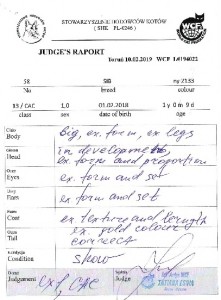 STOWARZYSZENIE HODOWCÓW KOTÓW
( SHK PL-4246 )
WCF
JUDGE'S RAPORT
Toruń 10.02.2019 WCF 1#194022
58 SIB ny 2133
No breed colour
13 / CAC 1,0 01.02.2018 1 y 0 m 9 d
class sex date of birth age
Ciało
Body
Big, ex. form, ex legs
Głowa
Head
in development,
ex form and proportion
Oczy
Eyes
ex. form and set
Uszy
Ears
ex form and set
Futro
Coat
ex texture and length
ex. gold colour
Ogon
Tail
correct
Kondycja
Condition
show
Ocena
Judgement
Ex1, CAC
Sędzia
Judge